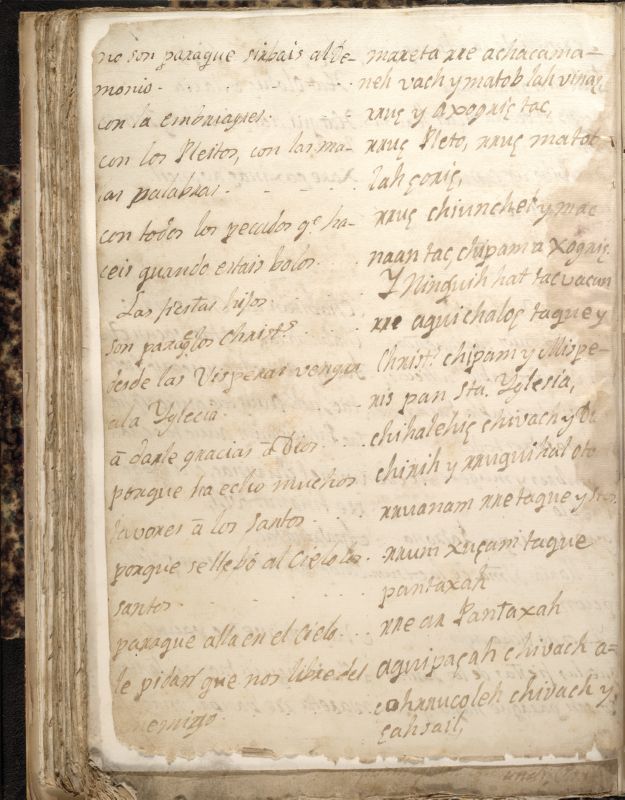 no son paraque sirbais al De-
monio.
con la embriaguez.
con los Pleitos, con las ma-
las palabras.
con todos los pecados q.e ha-
ceis quando estais bolos.
Las fiestas hijos
son para q.e los Christ.s
desde las Visperas vengan
a la Yglecia.
ā darle gracias ā Dios
porque ha echo muchos
favores ā los santos.
porque se llebó al Cielo los
santos.
paraque alla en el Cielo.
le pidan que nos libre del
enemigo.
mareta rre achacama-
neh vach y matob lah vinaç
rruç y axogniç tac,
rruç Pleto, rruç matob
lah çoriç,
rruç chiunchel y mac
naan taç chipam a xogniç.
Y Ninguih hat tac vacun
rre aquichaloç taque y
Christ.s chipam y Mispe-
ris pan Sta. Yglesia,
chihalehiç chivach y Di
chirih y rruquihal oto
rruanam rre taque y
rrum xuçam taque
pantaxah
rre ar Pantaxah
aquipaçah chivach a-
cohrrucoleh chivach y
çahsail,